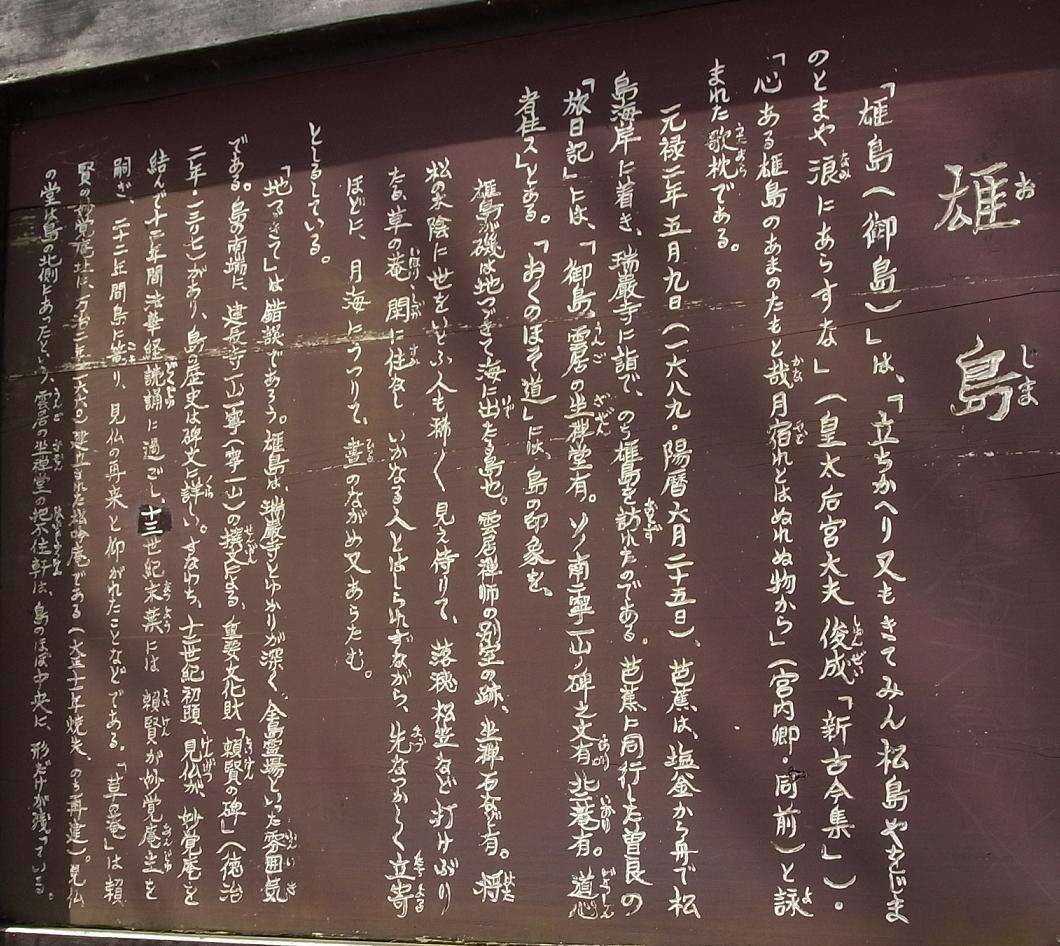 雄島
「雄島（御島）」は、「立ちかへり又もきてみん松島やをじま
のとまや浪にあらすな」（皇太后宮大夫俊成「新古今集」）。
「心ある雄島のあまのたもと哉月宿れとはぬれぬ物から」（宮内卿・同前）と詠
まれた歌枕である。
元禄二年五月九日（一六八九・陽暦六月二十五日）、芭蕉は、塩釜から舟で松
島海岸に着き、瑞巌寺に詣で、のち雄島を訪れたのである。芭蕉に同行した曽良の
「旅日記」には、「御島、雲居の坐禅堂有。ソノ南ニ寧一山ノ碑之文有。北ニ庵有。道心
者住ス」とある。「おくのほそ道」には、島の印象を、
雄島が磯は地つゞきて海に出たる島也。雲居禅師の別室の跡、坐禅石など有。将
松の木陰に世をいとふ人も稀〱見え侍りて、落穂松笠など打けぶり
たる草の菴、閑に住なし、いかなる人とはしられずながら、先なつかしく立寄
ほどに、月海にうつりて、昼のながめ又あらたむ。
としるしている。
「地つゞきて」は錯誤であろう。雄島は、瑞巌寺とゆかりが深く、全島霊場といった雰囲気
である。島の南端に、建長寺一山一寧（寧一山）の撰文による、重要文化財「頼賢の碑」（徳治
二年・一三〇七）があり、島の歴史は碑文に詳しい。すなわち、十二世紀初頭、見仏が、妙覚庵を
結んで十二年間法華経読誦に過ごし、十三世紀末葉には頼賢が妙覚庵主を
嗣ぎ、二十二年間島に篭り、見仏の再来と仰がれたことなどである。「草の庵」は頼
賢の妙覚庵址に、建立された松吟庵である（大正十二年焼失、のち再建）。見仏
の堂は島の北側にあったという。雲居の坐禅堂の把不住軒は、島のほぼ中央に、形だけが残っている。